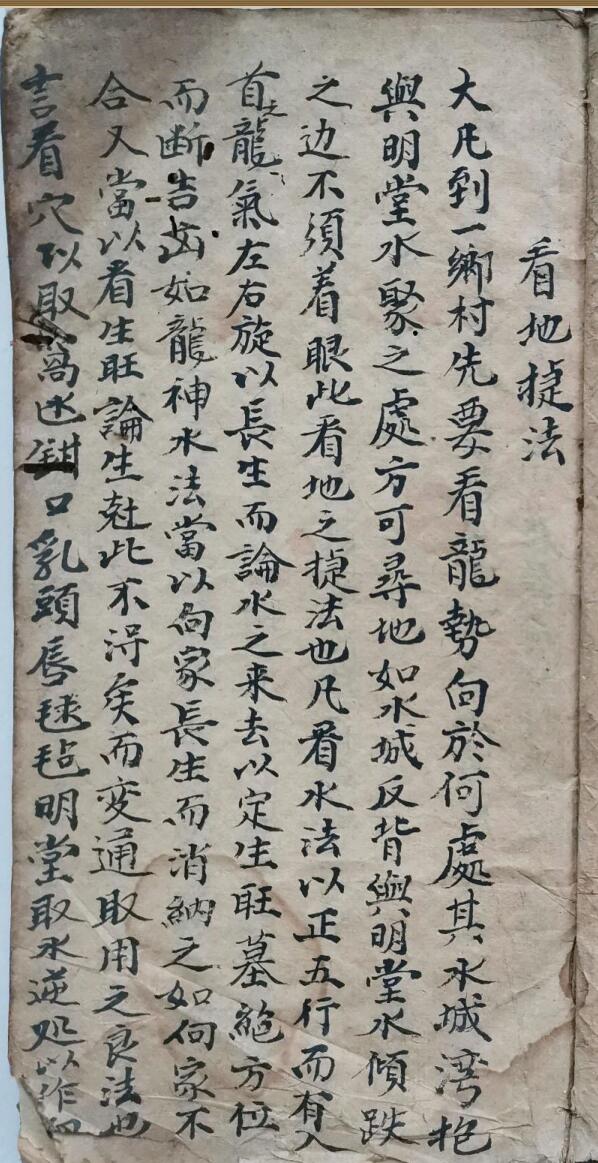 看地捷法
大凡到一鄉村先要看龍勢向於何處其水城湾抱
與明堂水聚之處方可尋地如水城反背與明堂水傾跌
之边不須着眼此看地之捷法也凡看水法以正五行而有入
首之龍氣左右旋以長生而論水之来去以定生旺墓絶方位
而断吉凶如龍神水法當以向家長生而消納之如向家不
合又當以看生旺論生尅此不得矣而变通取用之良法也
言看穴以取窩鉗口乳頭唇毬毡明堂取水逆处以作